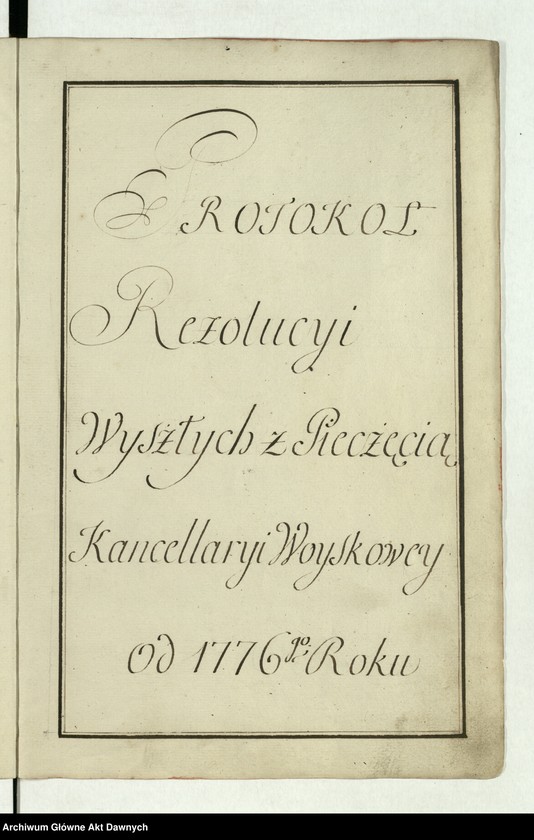 PROTOKOŁ
Rezolucyi
Wyszłych z Pieczęcią
Kancellaryi Woyskowey
Od 1776go. Roku
Archiwum Główne Akt Dawnych